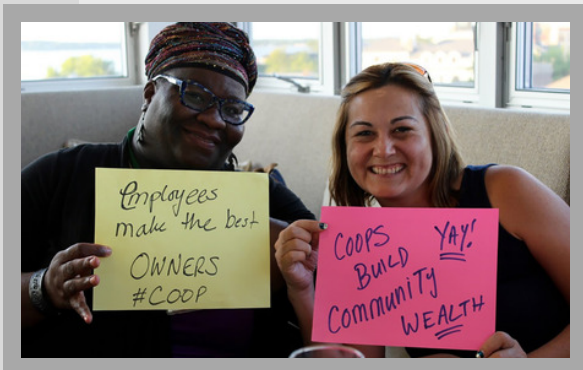 Employees
make the best
OWNERS
#COOP
COOPS YAY!
BUILD
COMMUNITY
WEALTH